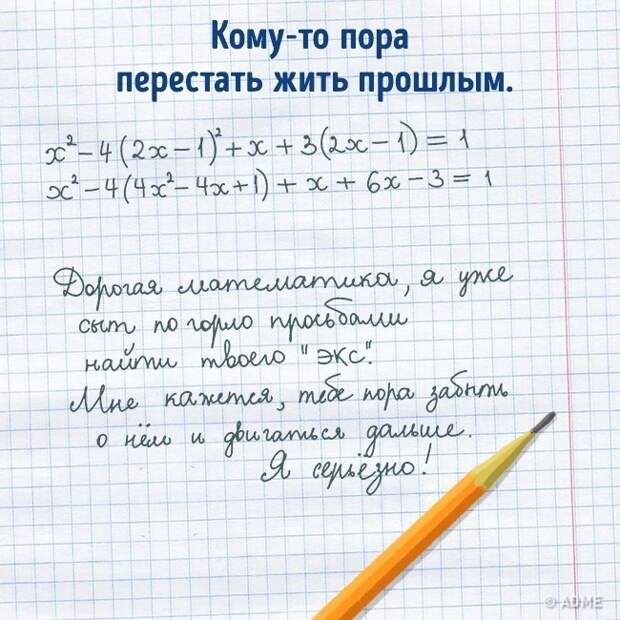 Кому-то пора
перестать жить прошлым.
x² – 4(2x – 1)² + x + 3(2x – 1) = 1
x² – 4(4x² – 4x + 1) + x + 6x – 3 = 1
Дорогая математика, я уже
сыт по горло просьбами
найти твоего "экс".
Мне кажется, тебе пора забыть
о нём и двигаться дальше.
Я серьёзно!
© ADME